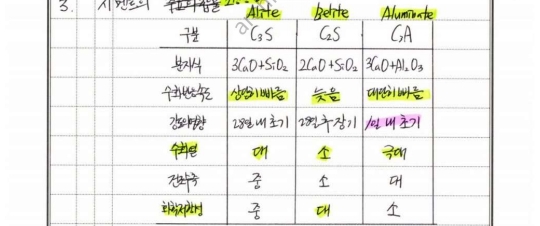 3. 시멘트의
Alite Belite Aluminate
구분 C₃S C₂S C₃A
분자식 3CaO+SiO₂ 2CaO+SiO₂ 3CaO+Al₂O₃
수화반응속도 상당히빠름 늦음 대단히빠름
강도영향 28일내초기 28일후장기 1일내초기
수화열 대 소 극대
건조수축 중 소 대
화학저항성 중 대 소